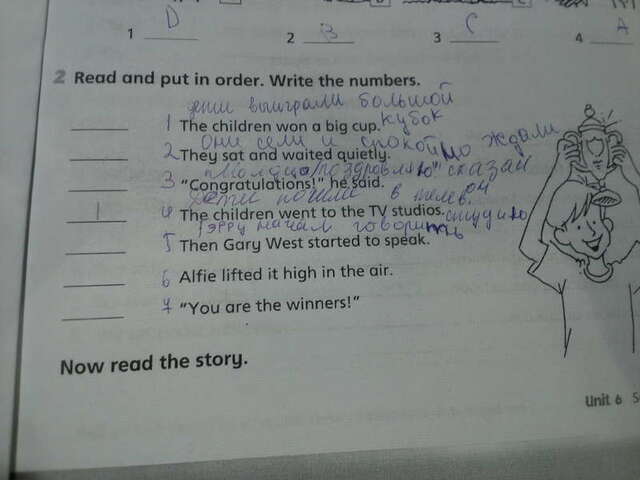 D B C A
1 2 3 4
2 Read and put in order. Write the numbers.
дети выиграли большой
кубок
1 The children won a big cup.
Они сели и спокойно ждали
2 They sat and waited quietly.
сказал
3 "Congratulations!" he said.
он
Дети пошли в телев.
1 4 The children went to the TV studios.
студию
Гэрри начал говорить
5 Then Gary West started to speak.
6 Alfie lifted it high in the air.
7 "You are the winners!"
Now read the story.
Unit 6